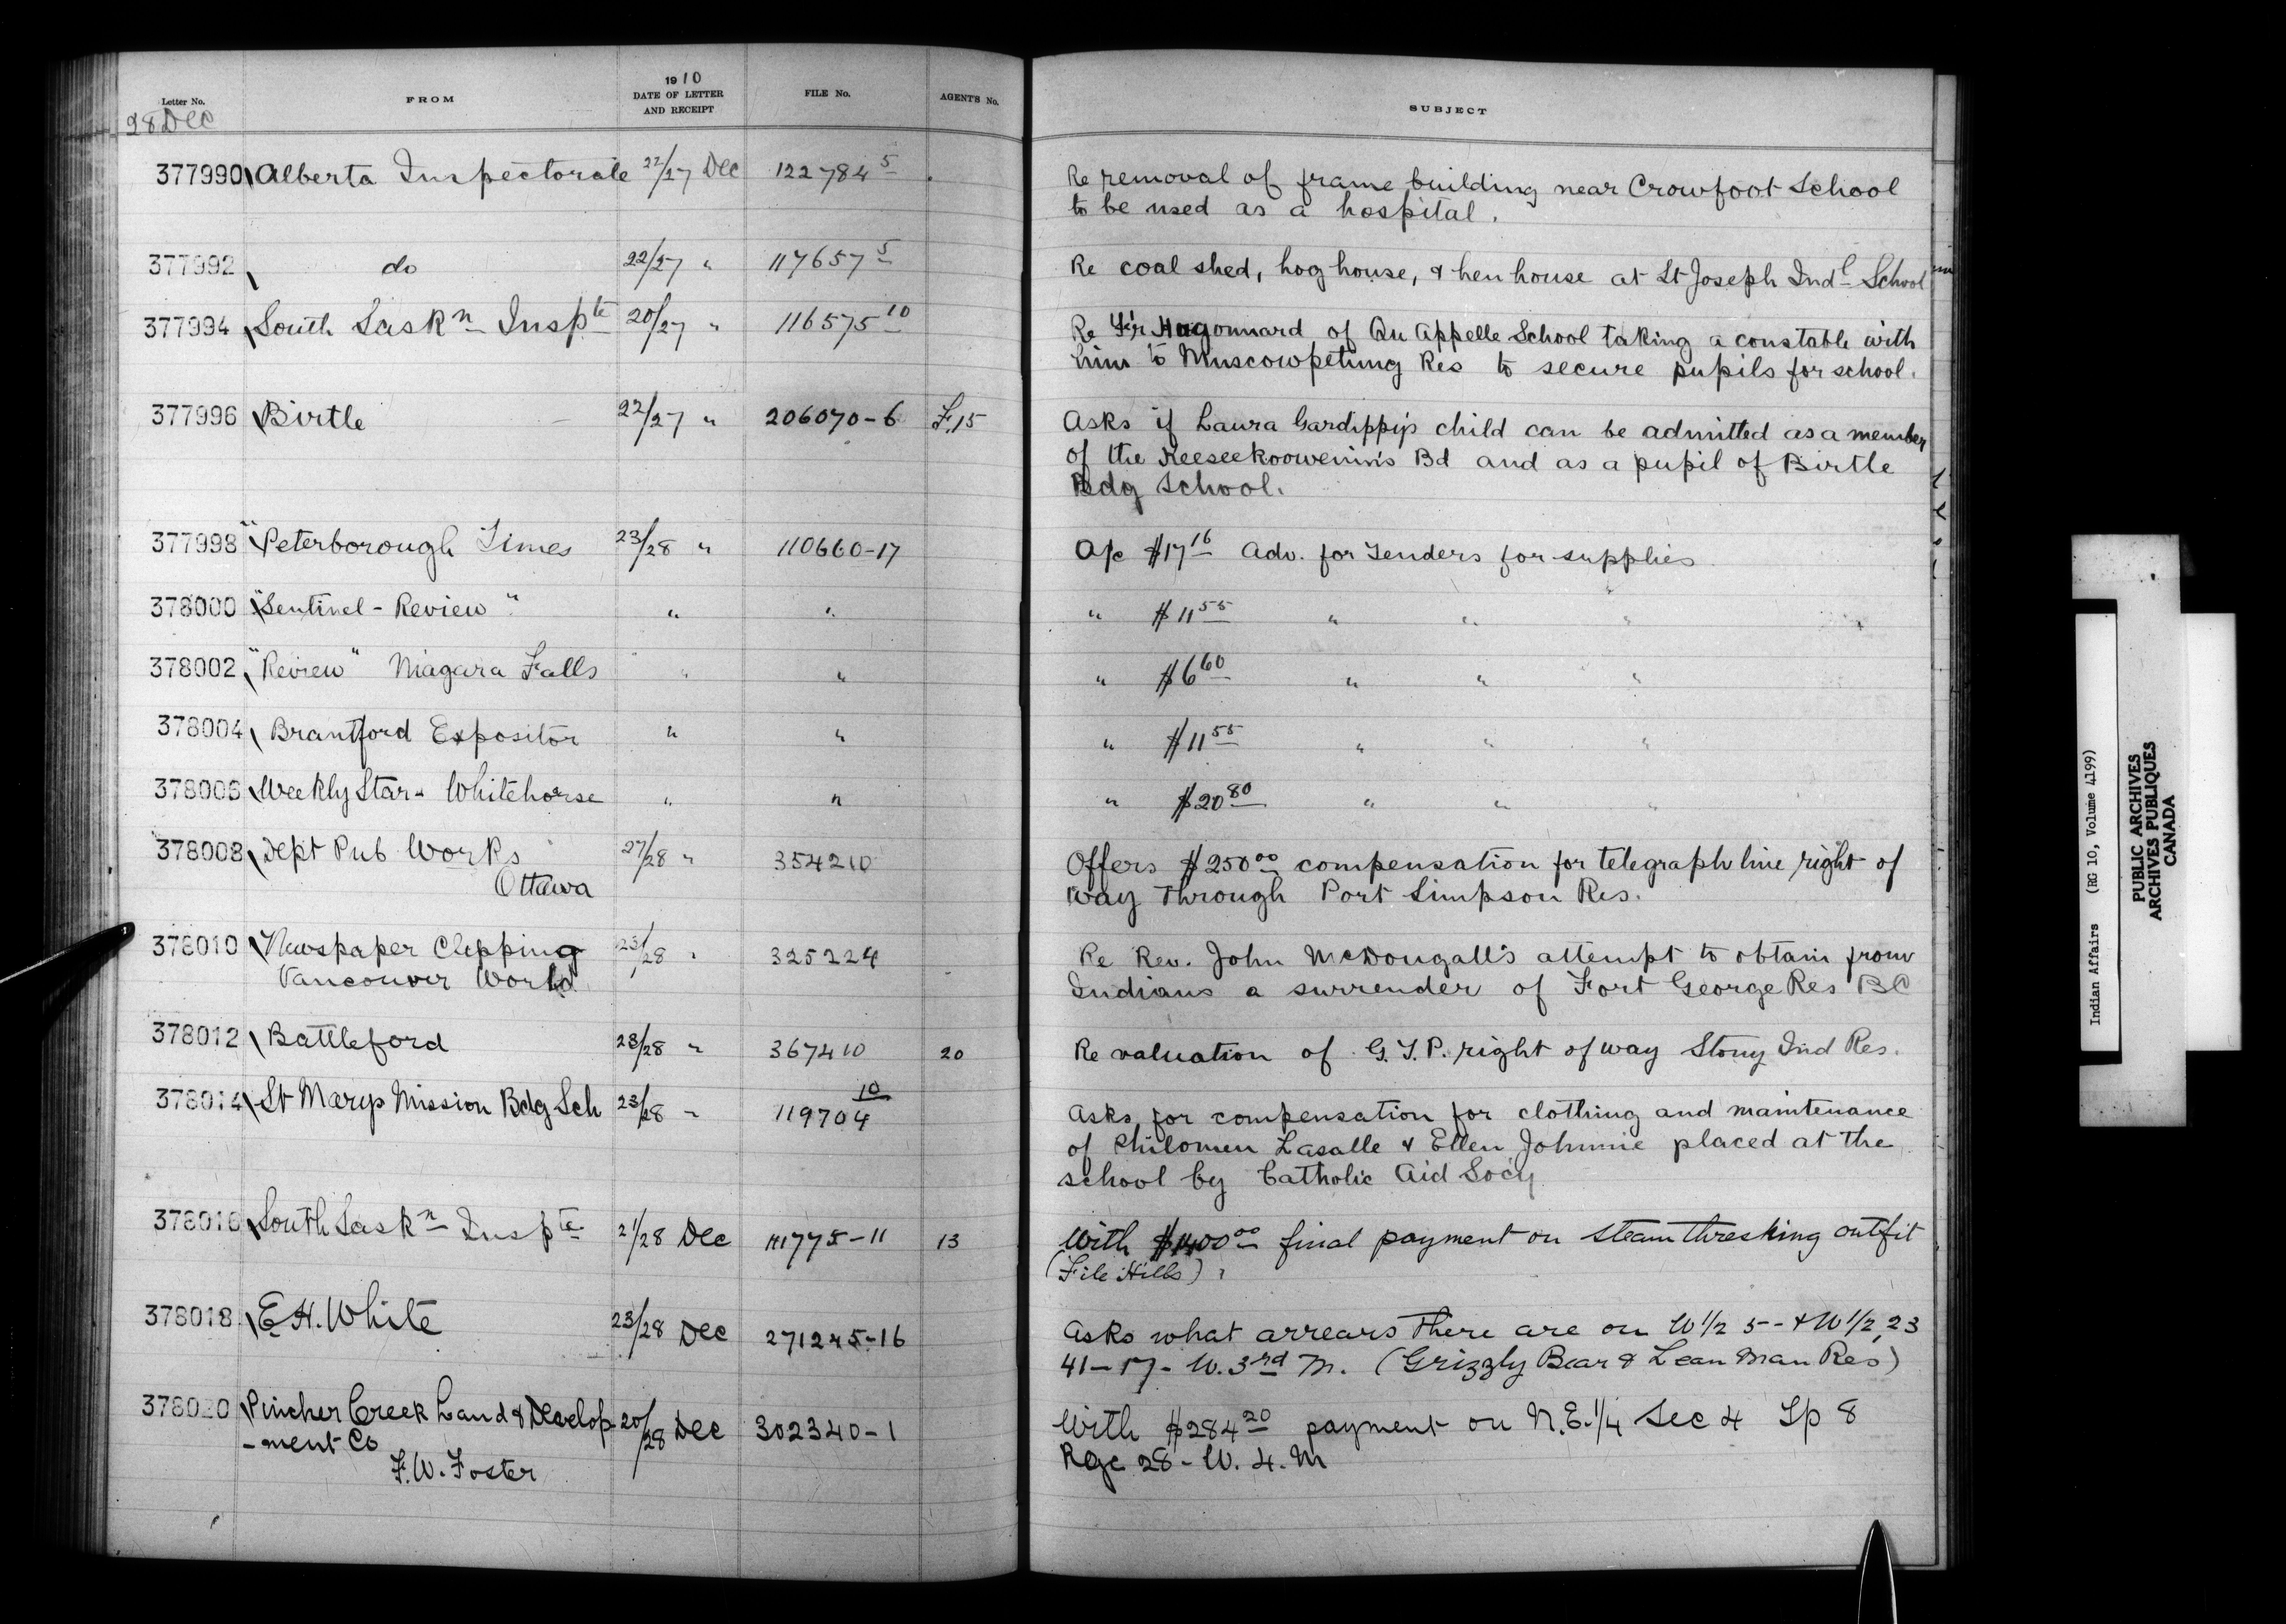 Letter No. FROM 1910 DATE OF LETTER AND RECEIPT FILE No. AGENT'S No. SUBJECT
28 Dec
377990 Alberta Inspectorate 22/27 Dec 122784 5 Re removal of frame building near Crowfoot School
to be used as a hospital.
377992 do 22/27 " 117657 5 Re coal shed, hog house, & hen house at St Joseph Indl School
377994 South Saskn Inspte 20/27 " 116575 10 Re Fr Hugonnard of Qu Appelle School taking a constable with
him to Muscowpetung Res to secure pupils for school.
377996 Birtle 22/27 " 206070-6 F.15 Asks if Laura Gardippi's child can be admitted as a member
of the Keeseekoowenin's Bd and as a pupil of Birtle
Bdg School.
377998 "Peterborough Times 23/28 " 110660-17 A/c $17 16 Adv. for Tenders for supplies
378000 "Sentinel - Review" " " " $11 55 " " "
378002 "Review" Niagara Falls " " " $6 60 " " "
378004 Brantford Expositor " " " $11 55 " " "
378006 Weekly Star - Whitehorse " " " $20 80 " " "
378008 Dept Pub Works 27/28 " 354210 Offers $250 00 compensation for telegraph line right of
Ottawa way through Port Simpson Res.
378010 Newspaper Clipping 23/28 " 325224 Re Rev. John McDougall's attempt to obtain from
Vancouver World Indians a surrender of Fort George Res BC
378012 Battleford 23/28 " 367410 20 Re valuation of G.T.P. right of way Stony Ind Res.
378014 St Marys Mission Bdg Sch 23/28 " 119704 10 Asks for compensation for clothing and maintenance
of Philomen Lasalle & Ellen Johnnie placed at the
school by Catholic Aid Socy
378016 South Saskn Inspte 21/28 Dec 111775-11 13 With $1400 00 final payment on steam threshing outfit
(File Hills).
378018 E.H. White 23/28 Dec 271245-16 Asks what arrears there are on W 1/2 5 - & W 1/2 23
41-17- W. 3rd M. (Grizzly Bear & Lean Man Res)
378020 Pincher Creek Land & Develop 20/28 Dec 302340-1 With $284 20 payment on N.E. 1/4 Sec 4 Tp 8
-ment Co Rge 28 - W. 4. M
F.W. Foster
Indian Affairs (RG 10, Volume 4199)
PUBLIC ARCHIVES
ARCHIVES PUBLIQUES
CANADA